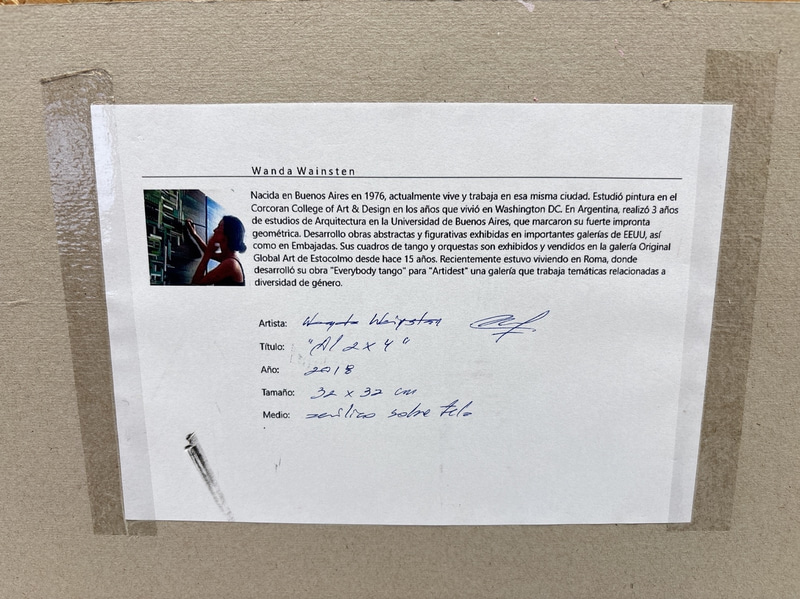 Wanda Wainsten
Nacida en Buenos Aires en 1976, actualmente vive y trabaja en esa misma ciudad. Estudió pintura en el
Corcoran College of Art & Design en los años que vivió en Washington DC. En Argentina, realizó 3 años
de estudios de Arquitectura en la Universidad de Buenos Aires, que marcaron su fuerte impronta
geométrica. Desarrollo obras abstractas y figurativas exhibidas en importantes galerías de EEUU, así
como en Embajadas. Sus cuadros de tango y orquestas son exhibidos y vendidos en la galería Original
Global Art de Estocolmo desde hace 15 años. Recientemente estuvo viviendo en Roma, donde
desarrolló su obra "Everybody tango" para "Artidest" una galería que trabaja temáticas relacionadas a
diversidad de género.
Artista: Wanda Wainsten
Título: "Al 2 x 4"
Año: 2018
Tamaño: 32 x 32 cm
Medio: acrílico sobre tela